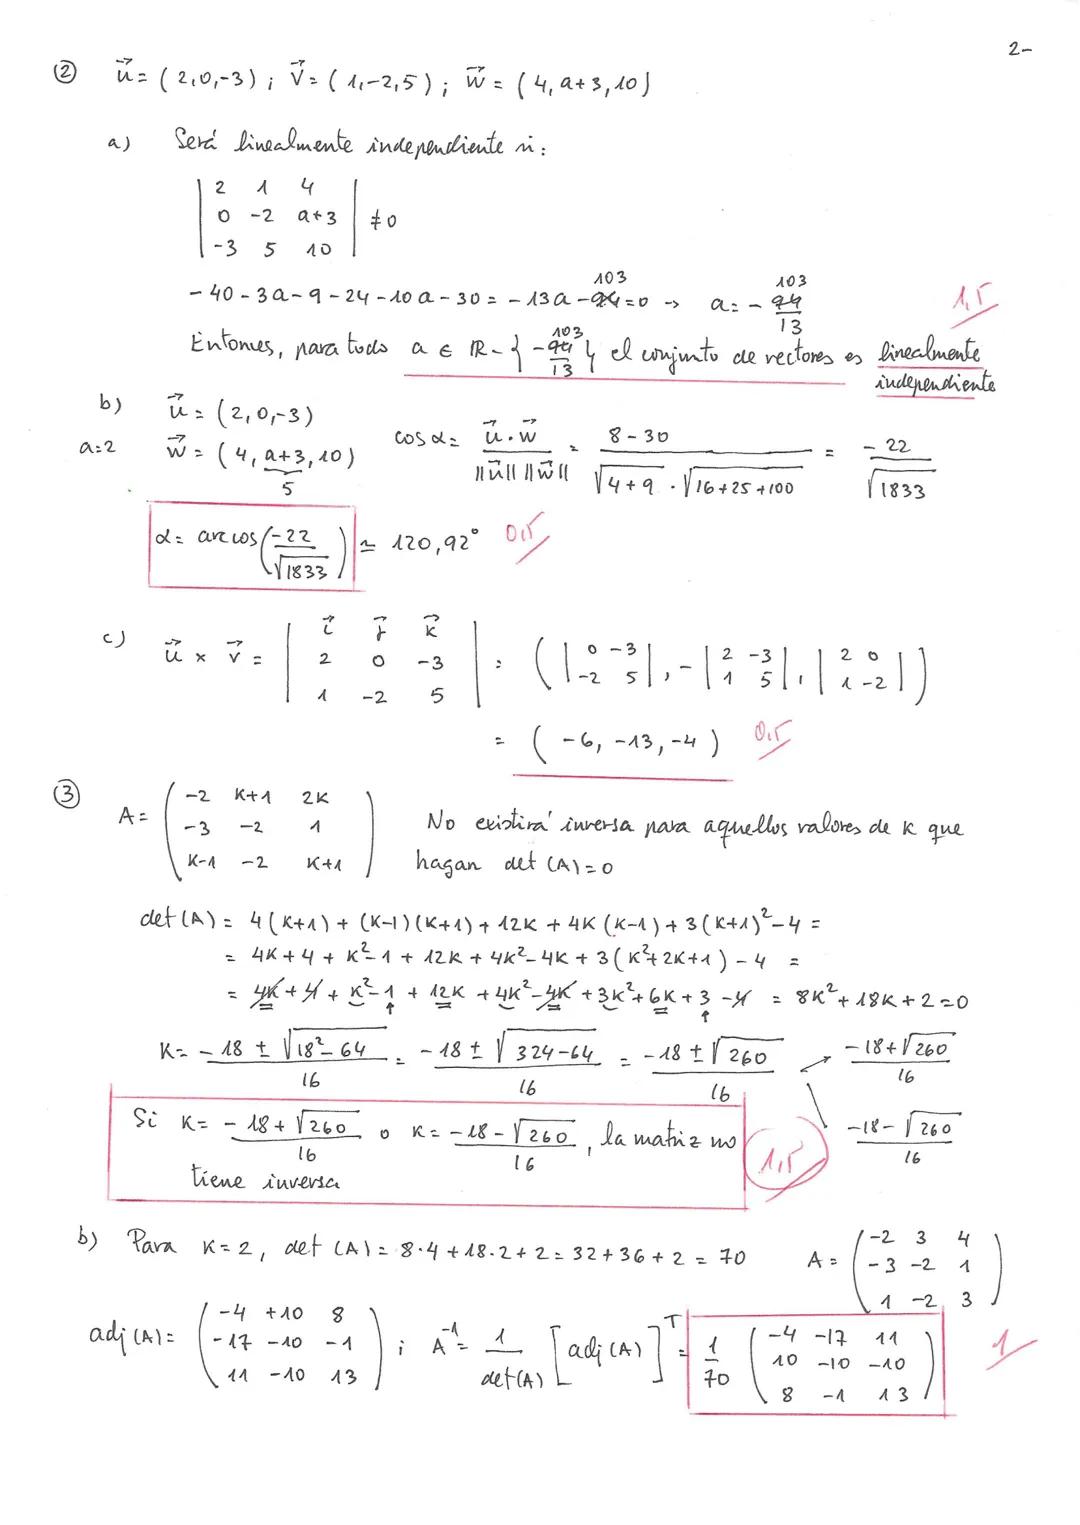 2-
② u⃗ = (2,0,-3); v⃗ = (1,-2,5); w⃗ = (4, a+3, 10)
a) Será linealmente independiente si:
| 2 1 4 |
| 0 -2 a+3 | ≠ 0
| -3 5 10 |
-40 - 3a - 9 - 24 - 10a - 30 = -13a - 103 = 0 → a = -103/13
1,5
Entonces, para todo a ∈ R - { -103/13 } el conjunto de vectores es linealmente
independiente
b) u⃗ = (2,0,-3)
a=2 w⃗ = (4, a+3, 10) cos α = u⃗·w⃗ / ||u⃗|| ||w⃗|| = 8-30 / √4+9 · √16+25+100 = -22 / √1833
5
α = arccos (-22/√1833) ≃ 120,92° 0,5
c) u⃗ × v⃗ = | i⃗ j⃗ k⃗ |
| 2 0 -3 |
| 1 -2 5 | = ( | 0 -3 ; -2 5 |, - | 2 -3 ; 1 5 |, | 2 0 ; 1 -2 | )
= ( -6, -13, -4 ) 0,5
③ A = ( -2 K+1 2K )
( -3 -2 1 )
( K-1 -2 K+1 )
No existirá inversa para aquellos valores de K que
hagan det (A) = 0
det (A) = 4(K+1) + (K-1)(K+1) + 12K + 4K(K-1) + 3(K+1)² - 4 =
= 4K + 4 + K² - 1 + 12K + 4K² - 4K + 3(K² + 2K + 1) - 4 =
= 4K + 4 + K² - 1 + 12K + 4K² - 4K + 3K² + 6K + 3 - 4 = 8K² + 18K + 2 = 0
K = -18 ± √18² - 64 / 16 = -18 ± √324-64 / 16 = -18 ± √260 / 16
-18 + √260 / 16
-18 - √260 / 16
Si K = -18 + √260 / 16 o K = -18 - √260 / 16, la matriz no
tiene inversa
1,5
b) Para K = 2, det (A) = 8·4 + 18·2 + 2 = 32 + 36 + 2 = 70
A = ( -2 3 4 )
( -3 -2 1 )
( 1 -2 3 )
adj (A) = ( -4 +10 8 )
( -17 -10 -1 )
( 11 -10 13 )
; A⁻¹ = 1/det(A) [adj (A)]ᵀ = 1/70 ( -4 -17 11 )
( 10 -10 -10 )
( 8 -1 13 )
1